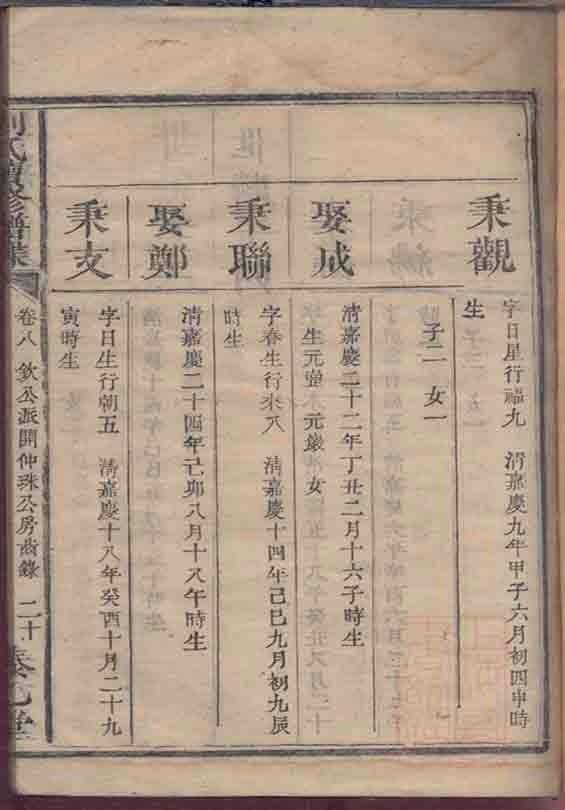 秉觀
字日星行福九 清嘉慶九年甲子六月初四申時
生
子二 女一
娶成
清嘉慶二十二年丁丑二月十六子時生
生元瑩 元鎣 女
秉聯
字春生行來八 清嘉慶十四年己巳九月初九辰
時生
娶鄭
清嘉慶二十四年己卯八月十八午時生
秉支
字日生行朝五 清嘉慶十八年癸酉十月二十九
寅時生
劉氏續修譜牒
卷八 欽公派開仲珠公房齒錄 二十
堂